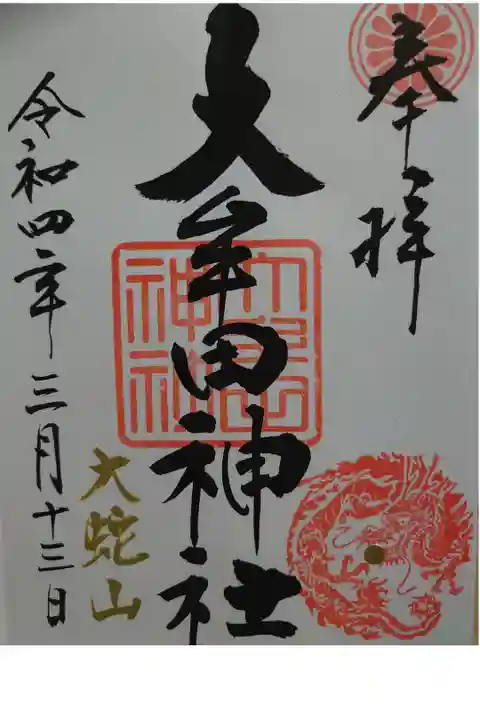 奉拝
大牟田神社
大牟田神社
大蛇山
令和四年三月十三日